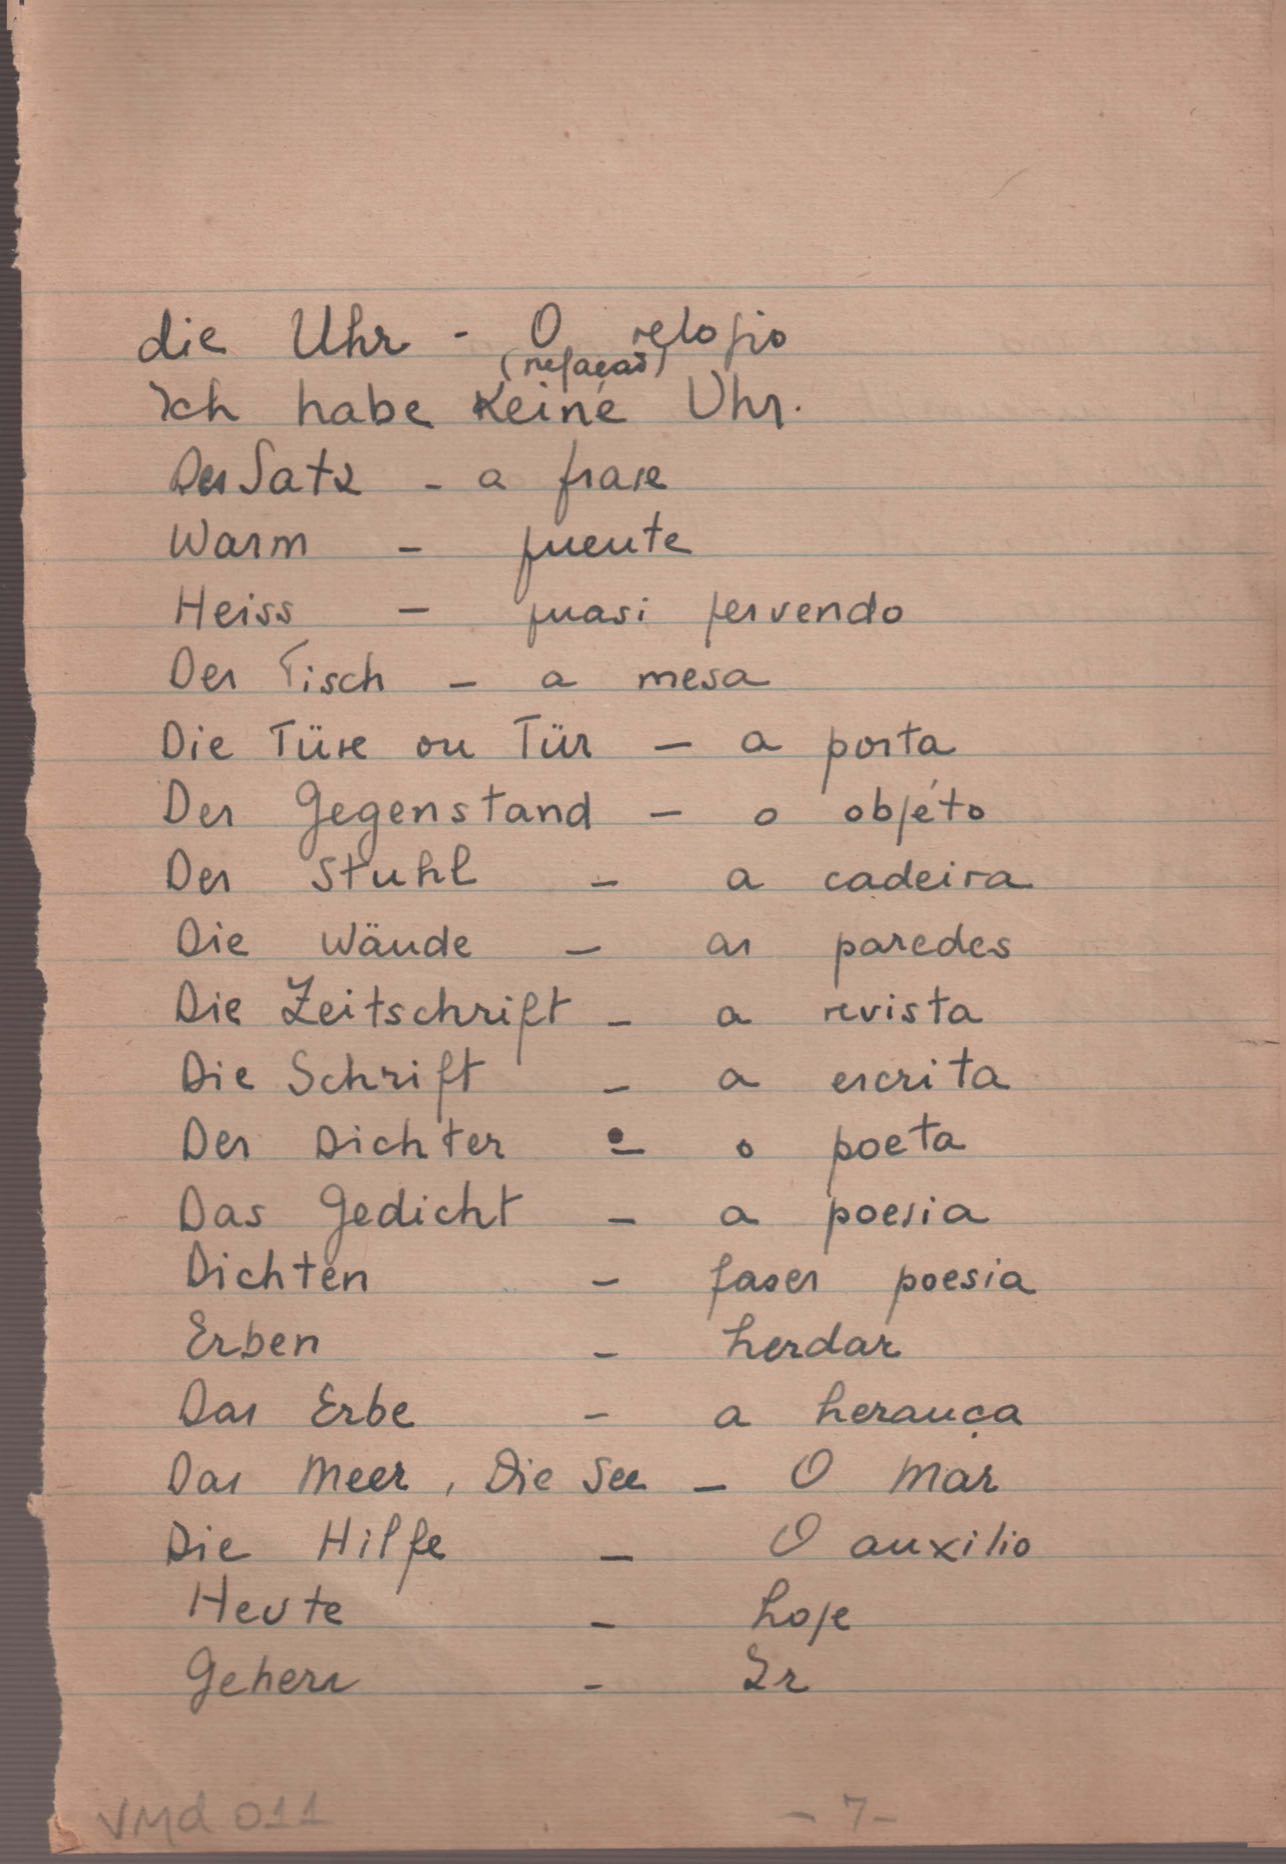 die Uhr - O relogio
(negação)
Ich habe Keine Uhr.
Der Satz - a frase
Warm - quente
Heiss - quasi fervendo
Der Tisch - a mesa
Die Türe ou Tür - a porta
Der Gegenstand - o objéto
Der Stuhl - a cadeira
Die Wände - as paredes
Die Zeitschrift - a revista
Die Schrift - a escrita
Der Dichter - o poeta
Das Gedicht - a poesia
Dichten - faser poesia
Erben - herdar
Das Erbe - a herança
Das Meer, Die See - O mar
Die Hilfe - O auxilio
Heute - hoje
Gehen - Ir
VMd 011 - 7 -